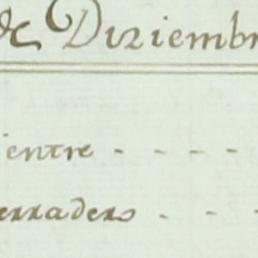 de Diziembr
ientre - - - -
erradero - - -